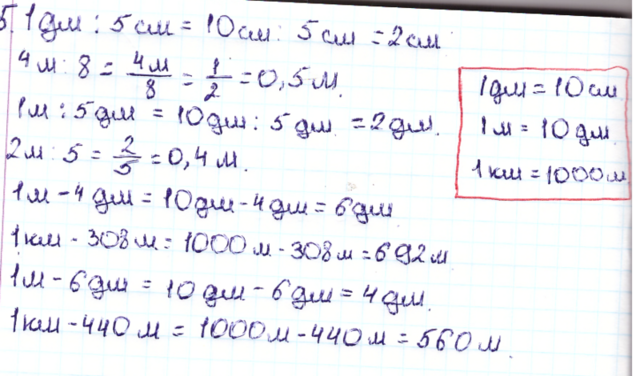 5) 1дм : 5 см = 10 см : 5 см = 2 см
4 м : 8 = 4м/8 = 1/2 = 0,5 м.
1м : 5 дм = 10 дм : 5 дм = 2 дм.
2 м : 5 = 2/5 = 0,4 м.
1 м - 4 дм = 10 дм - 4 дм = 6 дм
1 км - 308 м = 1000 м - 308 м = 692 м
1 м - 6 дм = 10 дм - 6 дм = 4 дм.
1 км - 440 м = 1000 м - 440 м = 560 м.
1 дм = 10 см
1 м = 10 дм
1 км = 1000 м